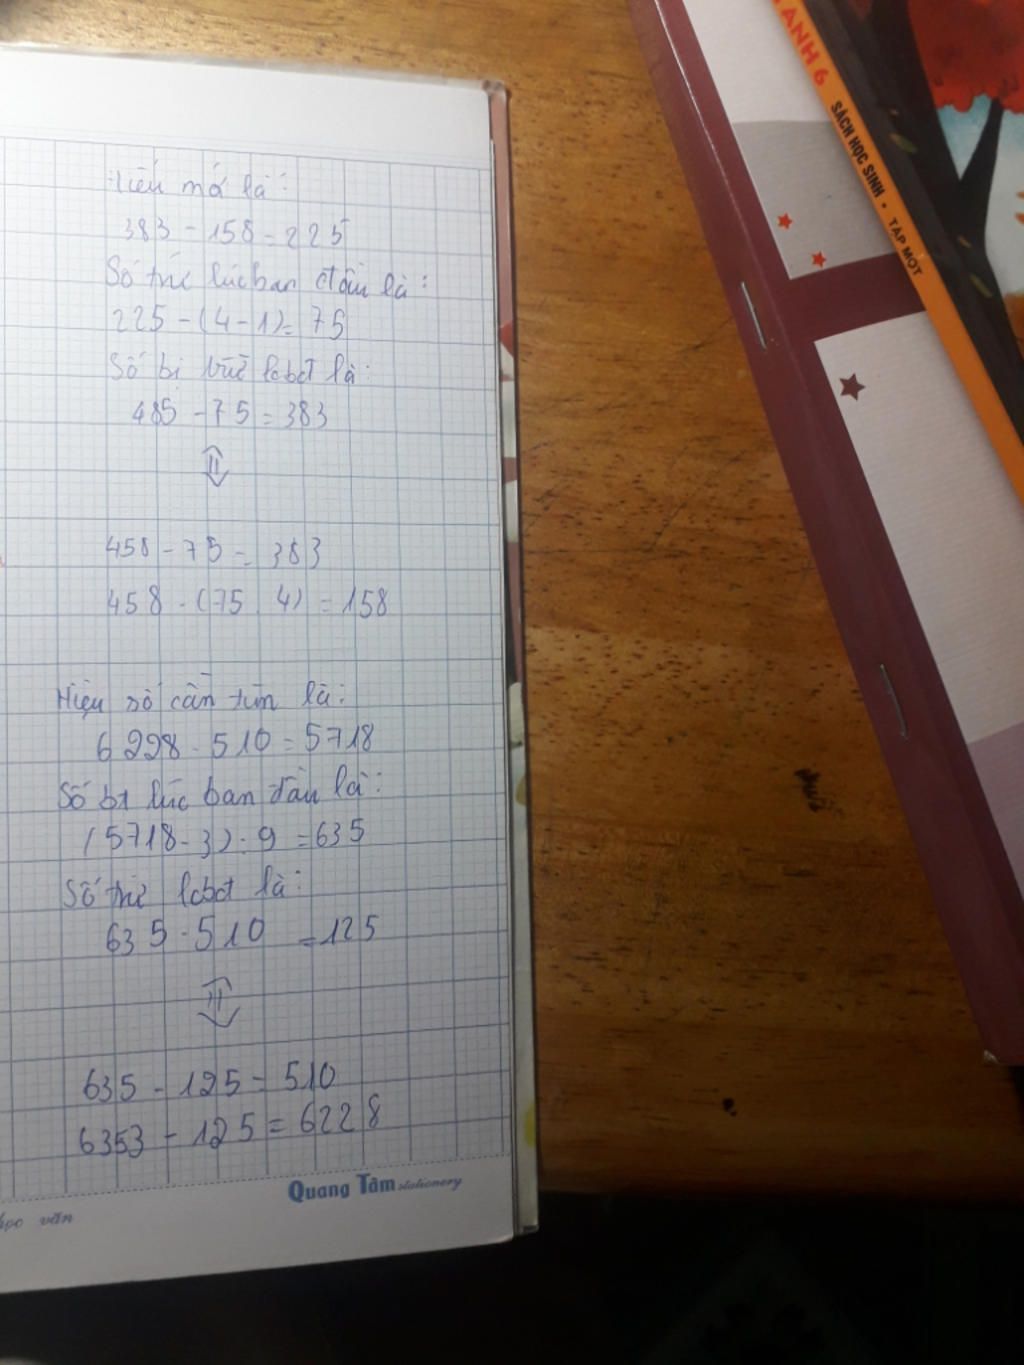 Hiệu mới là:
383 - 158 = 225
Số trừ lúc ban đầu là:
225 - (4 - 1) = 75
Số bị trừ lcbđ là:
485 - 75 = 383
458 - 75 = 383
458 - (75 . 4) = 158
Hiệu số cần tìm là:
6228 - 510 = 5718
Số bt lúc ban đầu là:
(5718 - 3) : 9 = 635
Số trừ lcbđ là:
635 - 510 = 125
635 - 125 = 510
6353 - 125 = 6228
Quang Tâm stationery
học văn
ANH 6
SÁCH HỌC SINH • TẬP MỘT